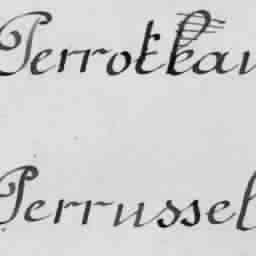 Perrotkau
Perrussel